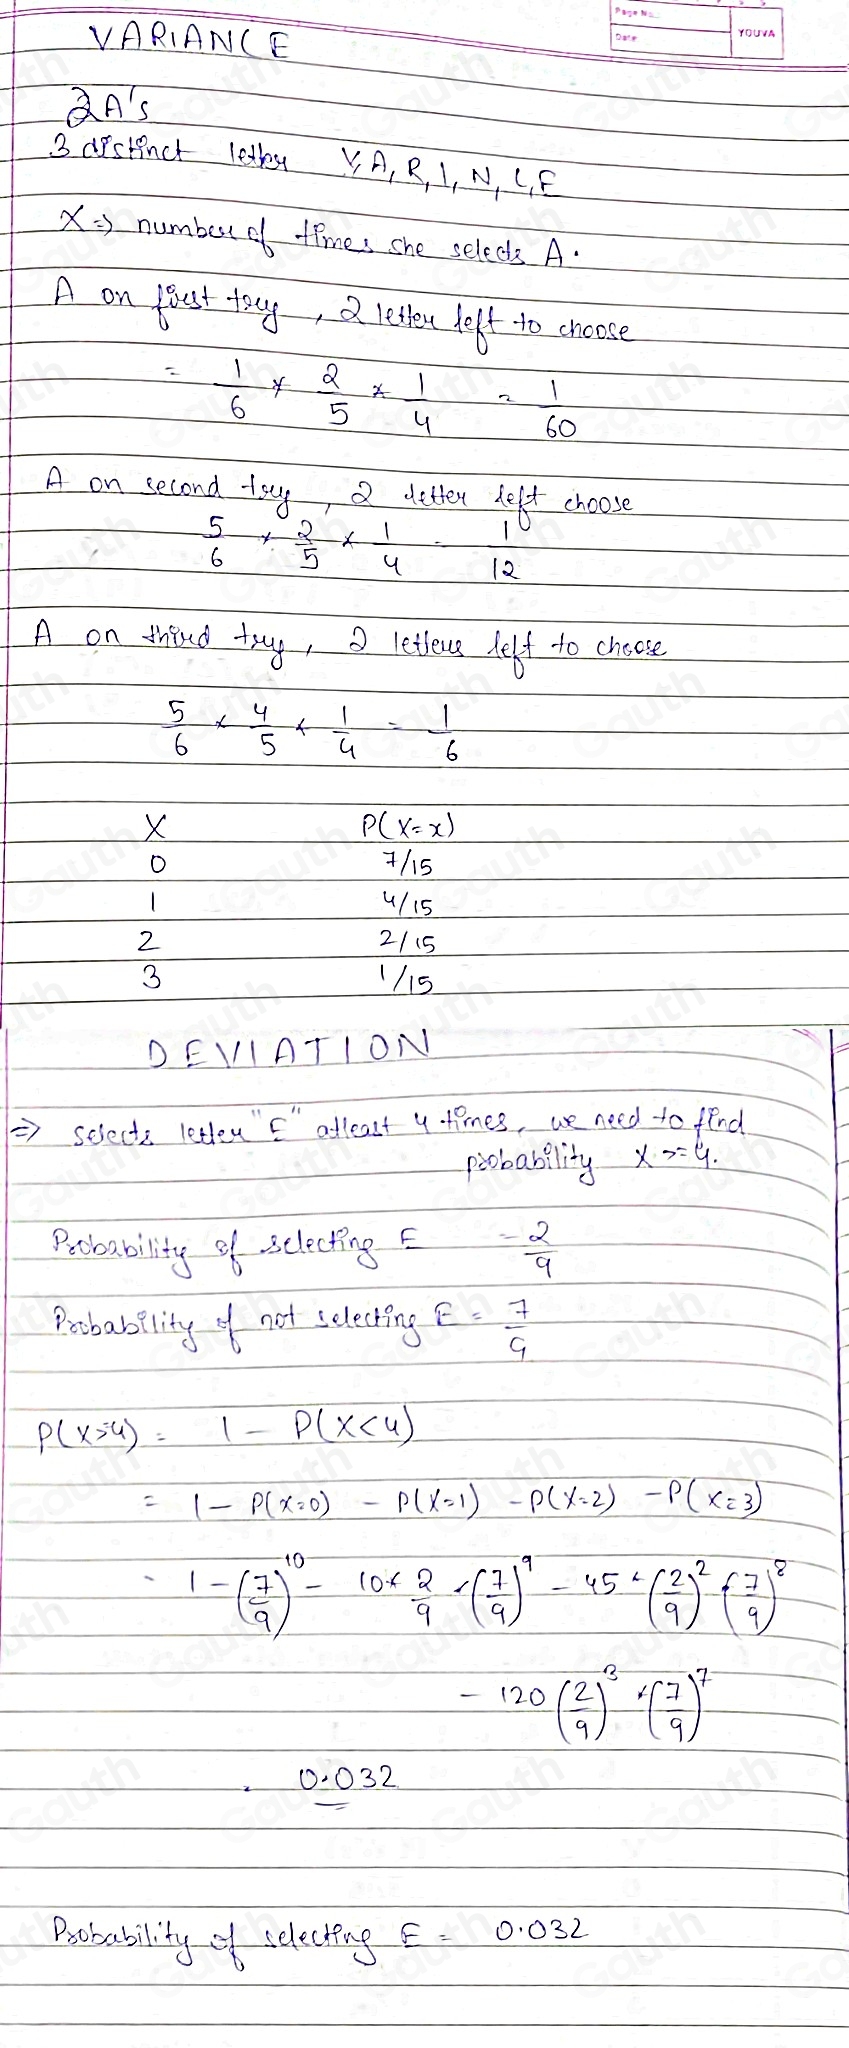 Page No.
Date
YOUVA
VARIANCE
2A's
3 distinct letter V, A, R, I, N, C, E
X => number of times she selects A.
A on first try, 2 letter left to choose
= 1/6 × 2/5 × 1/4 = 1/60
A on second try, 2 letter left choose
5/6 × 2/5 × 1/4 = 1/12
A on third try, 2 letters left to choose
5/6 × 4/5 × 1/4 = 1/6
X P(X=x)
0 7/15
1 4/15
2 2/15
3 1/15
DEVIATION
=> selects letter "E" atleast 4 times, we need to find
probability X >= 4.
Probability of selecting E = 2/9
Probability of not selecting E = 7/9
P(X>=4) = 1 - P(X<4)
= 1 - P(X=0) - P(X=1) - P(X=2) - P(X=3)
= 1 - (7/9)^10 - 10 × 2/9 × (7/9)^9 - 45 × (2/9)^2 × (7/9)^8
- 120 (2/9)^3 × (7/9)^7
= 0.032
Probability of selecting E = 0.032